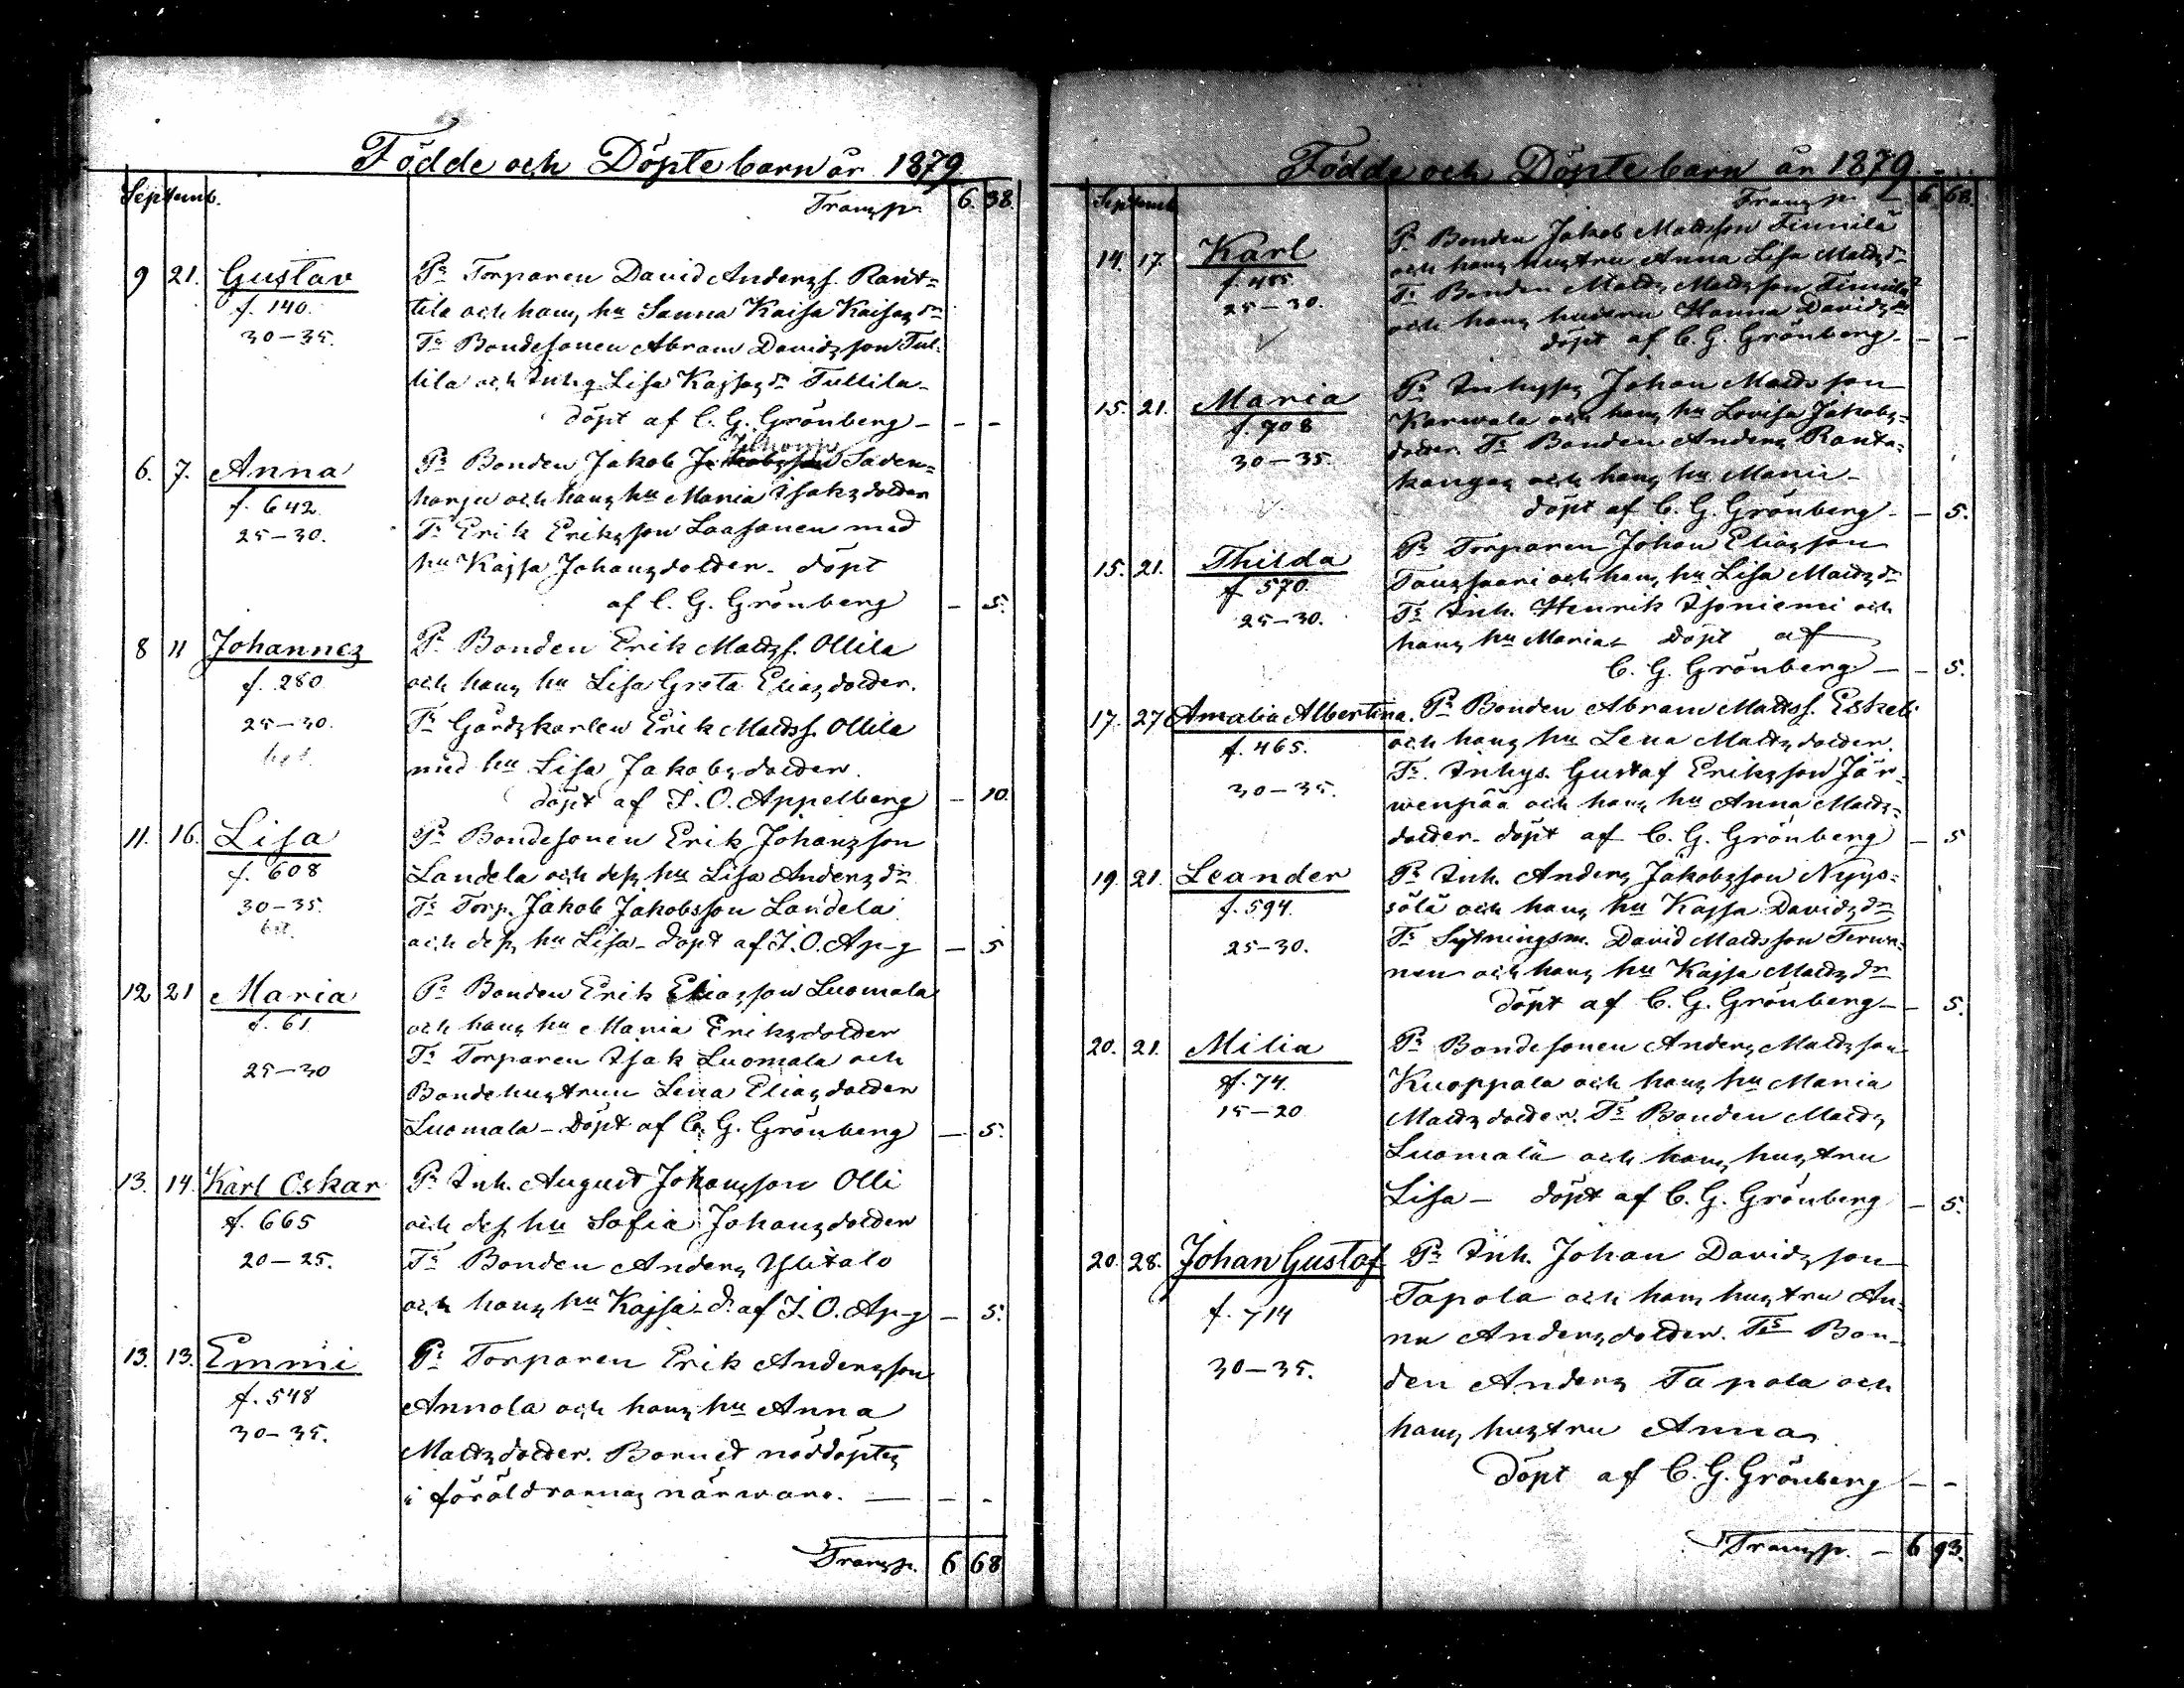 Födde och Döpte barn år 1879
Septemb.
Transp. 6. 38.
9 21. Gustav Prs Torparen David Anderss. Rant=
f. 140. tila och hans hu Sanna Kaisa Kaisasdr
30-35. Ts Bondesonen Abram Davidsson Tul-
lila och Inhs Lisa Kajsasdr Tullila-
döpt af C. G. Grönberg - - -
Johanss
6. 7. Anna Prs Bonden Jakob Jakobsson Saden=
f. 642. harju och hans hu Maria Isaksdotter
25-30. Ts Erik Eriksson Laasanen med
hu Kajsa Johansdotter. döpt
af C. G. Grönberg - 5.
8 11 Johannes Prs Bonden Erik Matss. Ollila
f. 280 och hans hu Lisa Greta Eliasdotter.
25-30. Ts Gårdskarlen Erik Matss. Ollila
med hu Lisa Jakobsdotter.
döpt af J. O. Appelberg - 10.
11. 16. Lisa Prs Bondesonen Erik Johansson
f. 608 Landela och dess hu Lisa Andersdr
30-35. Ts Torp. Jakob Jakobsson Landela
och dess hu Lisa- döpt af J. O. Ap-g - 5
12 21 Maria Prs Bonden Erik Eliasson Luomala
f. 61. och hans hu Maria Eriksdotter
25-30 Ts Torparen Isak Luomala och
Bondehustrun Lena Eliasdotter
Luomala- Döpt af C. G. Grönberg - 5.
13. 14. Karl Oskar Prs Inh. August Johansson Olli
f. 665 och dess hu Sofia Johansdotter
20-25. Ts Bonden Anders Ylitalo
och hans hu Kajsa- d. af J. O. Ap-g - 5.
13. 13. Emmi Prs Torparen Erik Andersson
f. 548 Annola och hans hu Anna
30-35. Matsdotter. Barnet nöddöptes
i föräldrarnas närvaro. - - -
Transp. 6 68
Födde och Döpte barn år 1879.
Septemb
Transp. - 6. 68.
14. 17. Karl Prs Bonden Jakob Matsson Finnilä
f. 455. och hans hustru Anna Lisa Matsdr
25-30. Ts Bonden Mats Matsson Finnilä
och hans hustru Hanna Davidsdr
döpt af C. G. Grönberg. - -
15. 21. Maria Prs Inhyss Johan Matsson
f. 708 Karvala och hans hu Lovisa Jakobs=
30-35. dotter. Ts Bonden Anders Ranta=
kangas och hans hu Maria-
döpt af C. G. Grönberg. - 5.
15. 21. Thilda Prs Torparen Johan Eliasson
f. 570. Tanssaari och hans hu Lisa Matsdr
25-30. Ts Inh. Henrik Isoniemi och
hans hu Maria- Döpt af
C. G. Grönberg - - 5.
17. 27 Amalia Albertina. Prs Bonden Abram Matss. Eskeli
f. 465. och hans hu Lena Matsdotter.
30-35. Ts. Inhys. Gustaf Eriksson Jär-
wenpää och hans hu Anna Mats=
dotter- döpt af C. G. Grönberg - 5
19. 21. Leander Prs Inh. Anders Jakobsson Nyys=
f. 594. sölä och hans hu Kajsa Davidsdr
25-30. Ts Sytningsm. David Matsson Terva=
nen och hans hu Kajsa Matsdr
döpt af C. G. Grönberg- - 5.
20. 21. Milia Prs Bondesonen Anders Matsson
f. 74. Knoppala och hans hu Maria
15-20 Matsdotter. Ts Bonden Mats
Luomala och hans hustru
Lisa- döpt af C. G. Grönberg - 5.
20. 28. Johan Gustaf Prs Inh. Johan Davidsson
f. 714 Tapola och hans hustru An=
30-35. na Andersdotter. Ts Bon-
den Anders Tapola och
hans hustru Anna
Döpt af C. G. Grönberg - -
Transp. - 6 93.